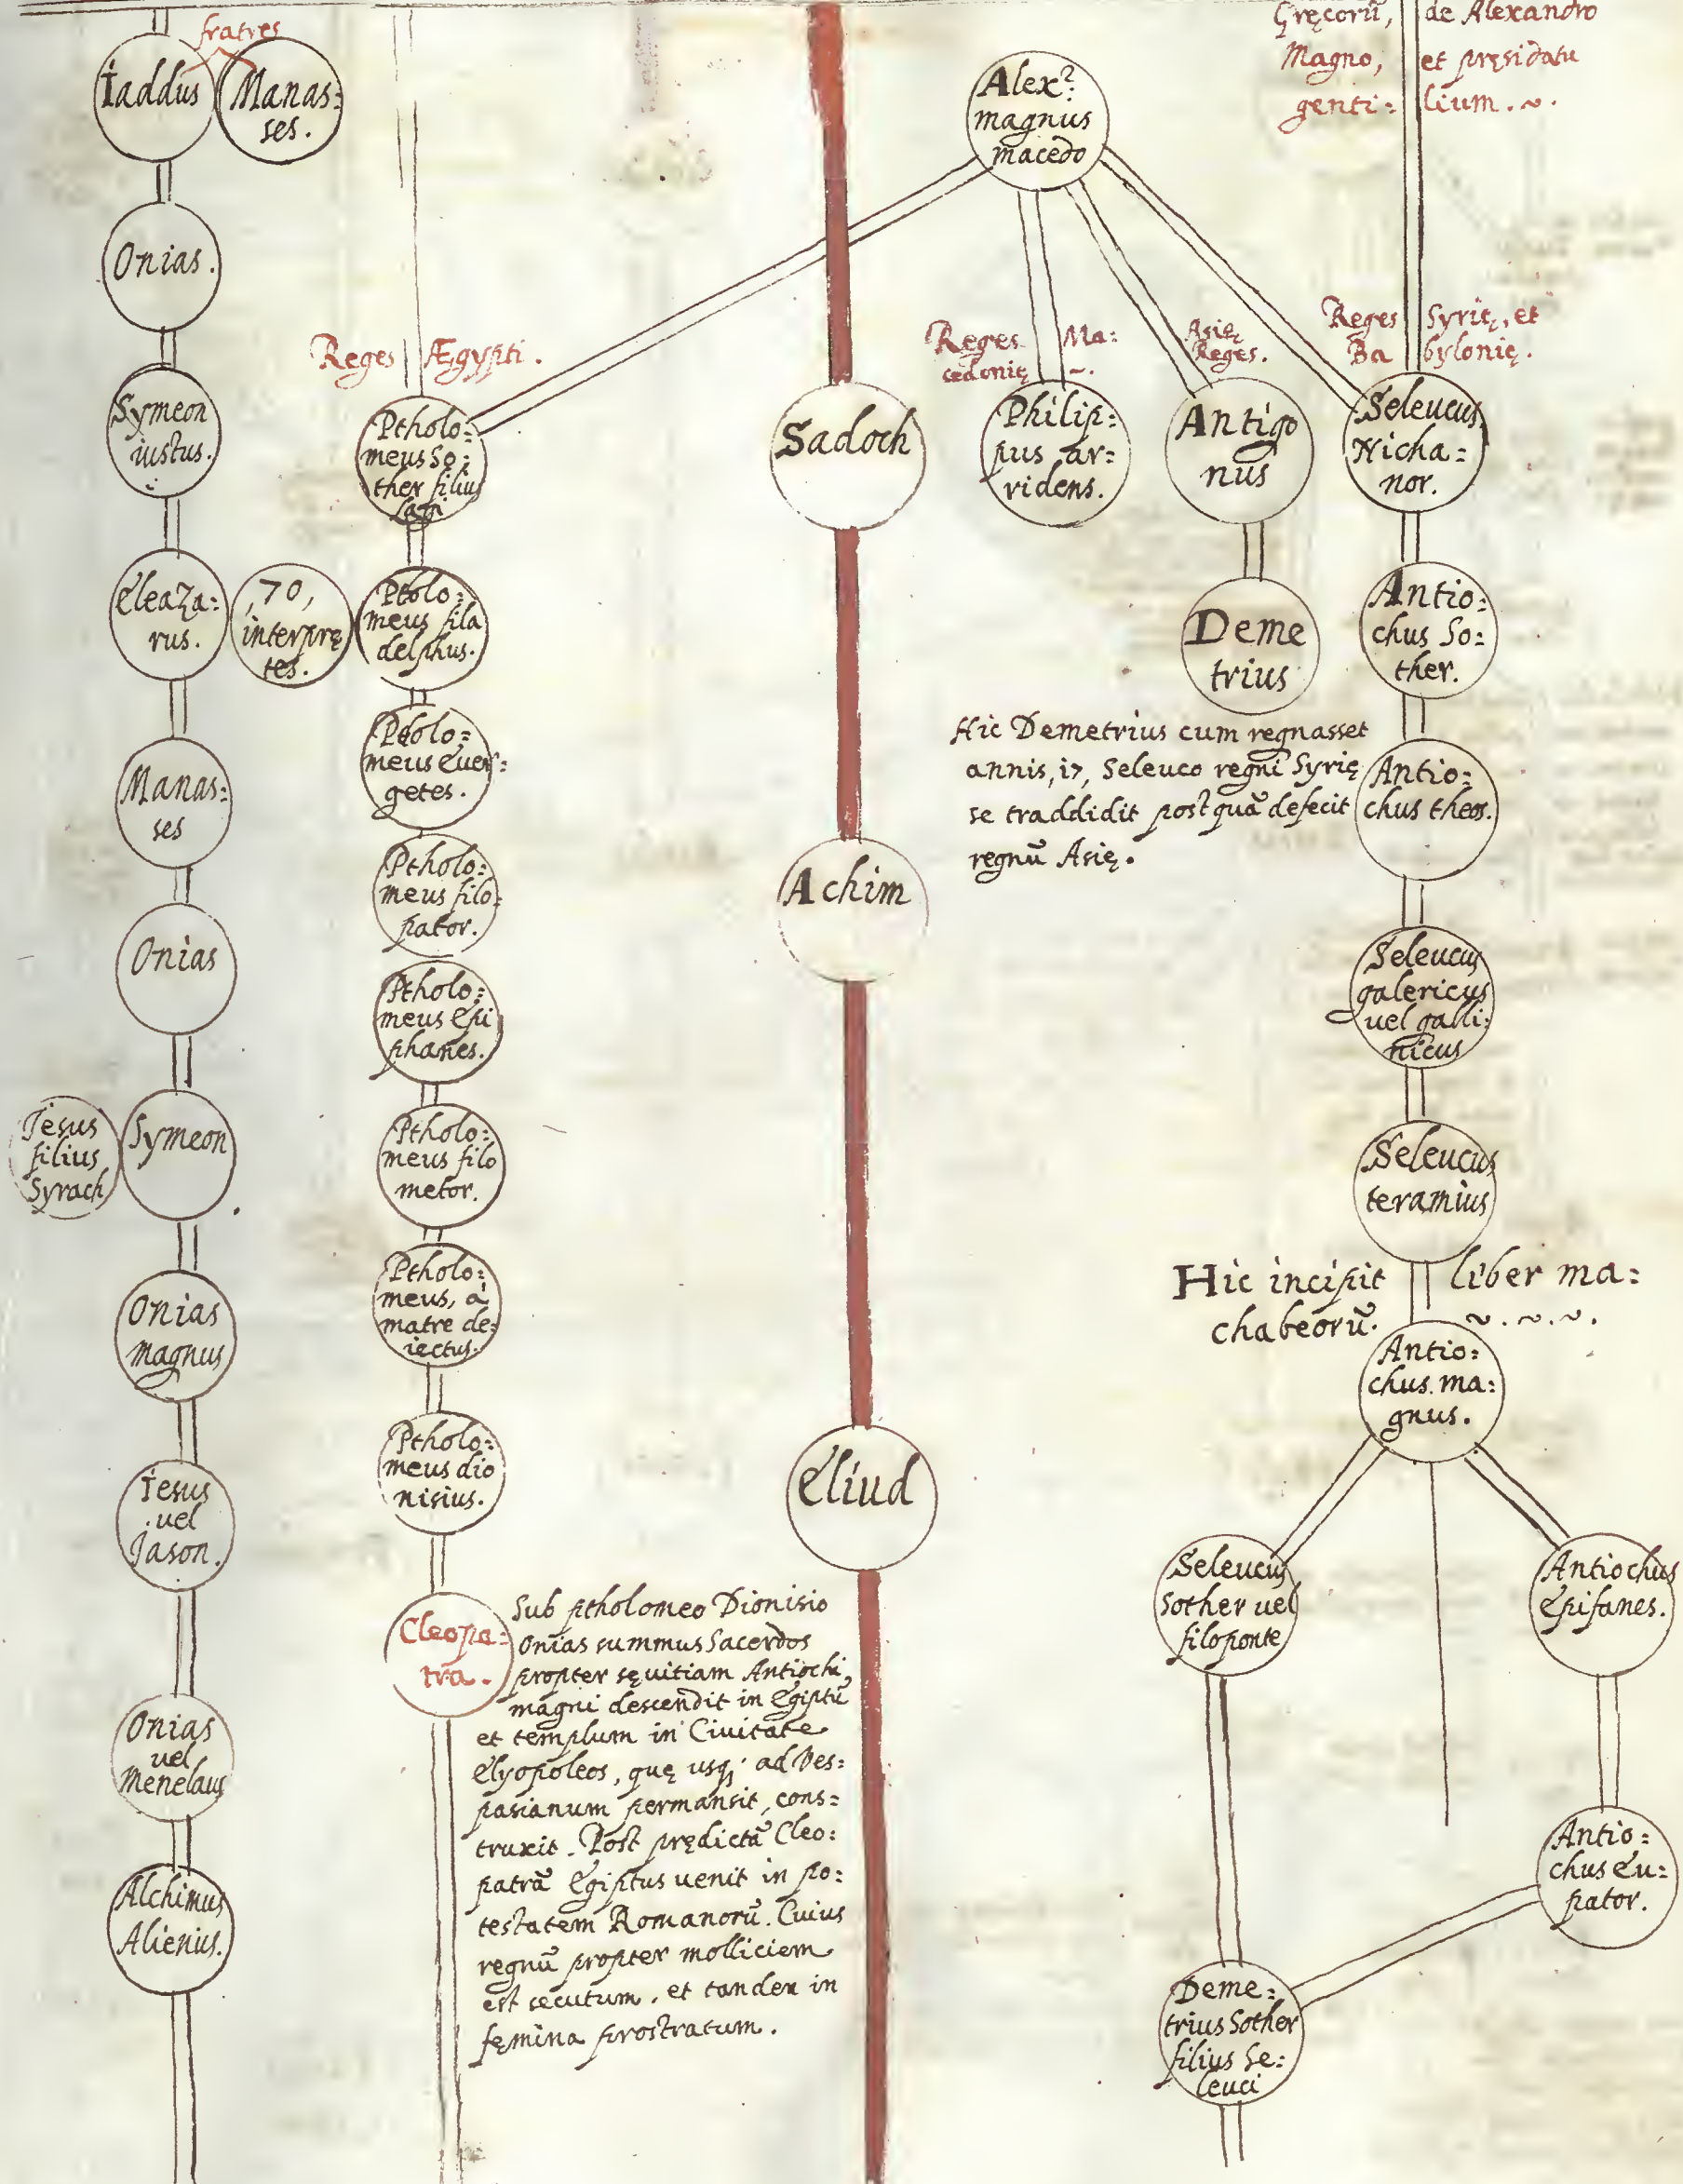 fratres
Iaddus
Manas:
ses.
Onias.
Symeon
iustus.
Eleaza:
rus.
,70,
interprę
tes.
Manas:
ses
Onias
Jesus
filius
Syrach
Symeon
Onias
magnus
Iesus
.uel
Jason.
Onias
uel
Menelaus
Alchimus
Alienus.
Reges Ægypti.
Ptholo:
meus So:
ther filius
Lagi
Ptolo:
meus fila
delphus.
Ptolo:
meus Euer:
getes.
Ptholo:
meus filo:
pator.
Ptholo:
meus Epi
phanes.
Ptholo:
meus filo
metor.
Ptholo:
meus, a
matre de:
iectus.
Ptholo:
meus dio
nisius.
Cleopa:
tra.
Sub ptholomeo Dionisio
Onias summus Sacerdos
propter sęuitiam Antiochi
magni descendit in Egiptū
et templum in Ciuitate
Elyopoleos, quę usq; ad Ves:
pasianum permansit, cons:
truxit. Post prędictā Cleo:
patrā Egiptus uenit in po:
testatem Romanorū. Cuius
regnū propter molliciem
est secutum, et tanden in
femina prostratum.
Sadoch
Achim
Eliud
Gręcorū, de Alexandro
Magno, et pręsidatu
genti: lium. ~.
Alex?:
magnus
macedo
Reges Ma:
cedonię ~.
Philip:
pus ar:
ridens.
Asię
Reges.
Antigo
nus
Deme
trius
Hic Demetrius cum regnasset
annis, i7, Seleuco regni Syrię
se traddidit postquā defecit
regnū Asię.
Reges Syrię, et
Ba bylonię.
Seleucus
Nicha:
nor.
Antio:
chus So:
ther.
Antio:
chus theos.
Seleucus
galericus
uel galli:
nicus
Seleucus
teramius
Hic incipit liber ma:
chabeorū. ~.~.~.
Antio:
chus. ma:
gnus.
Seleucus
Sother uel
filoponte
Antiochus
Epifanes.
Antio:
chus Eu:
pator.
Deme:
trius Sother
filius Se:
leuci